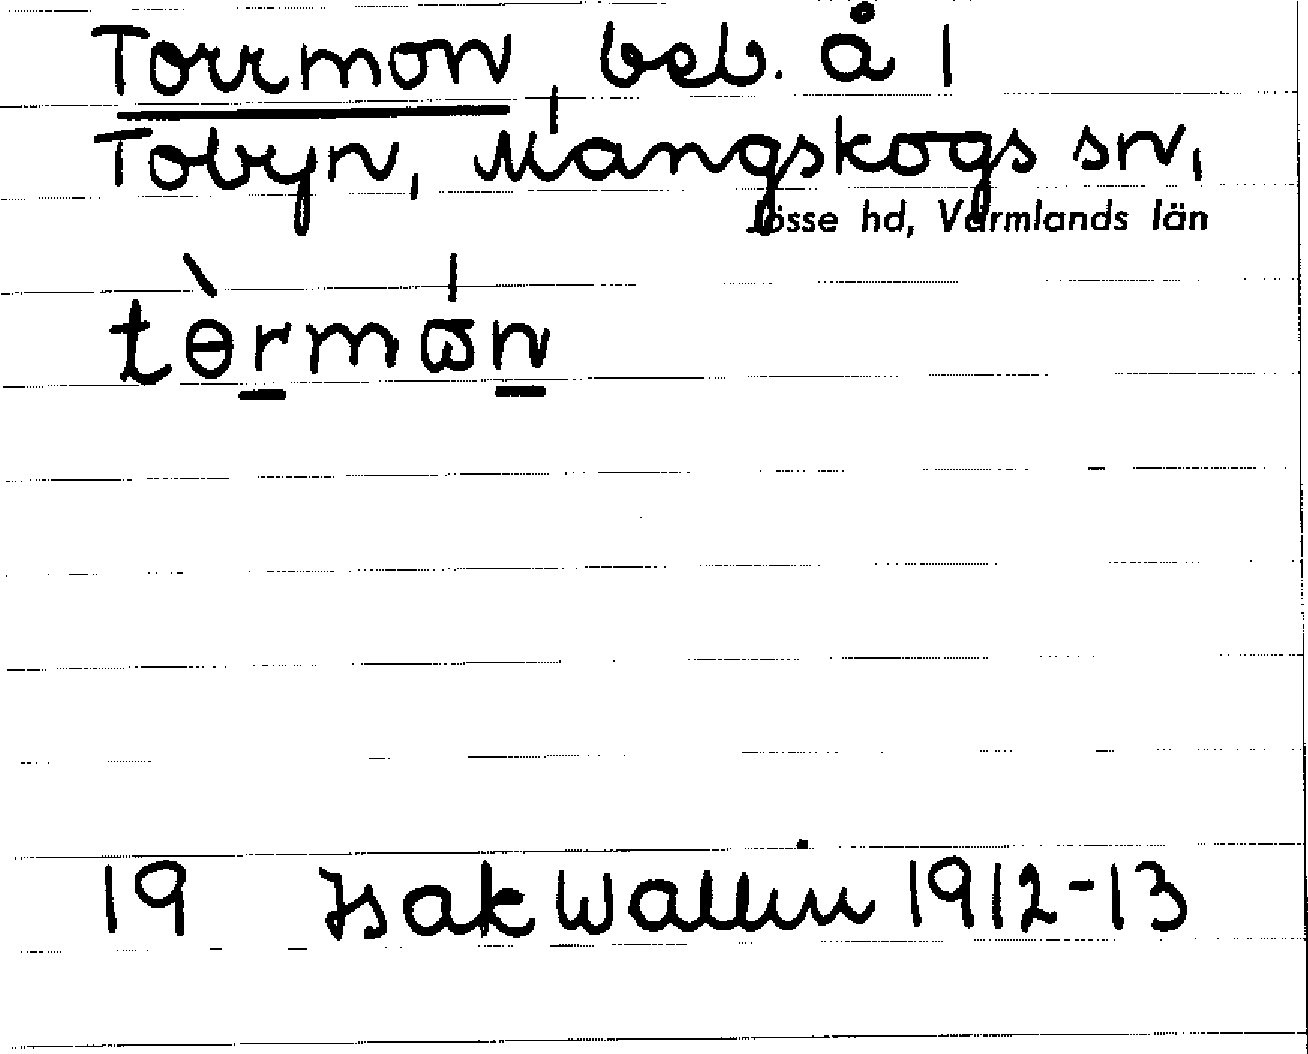 Torrmon, beb. å 1
Tobyn, Mangskogs sn,
Jösse hd, Värmlands län
tèrmɷn
19 Isak Wallin 1912-13